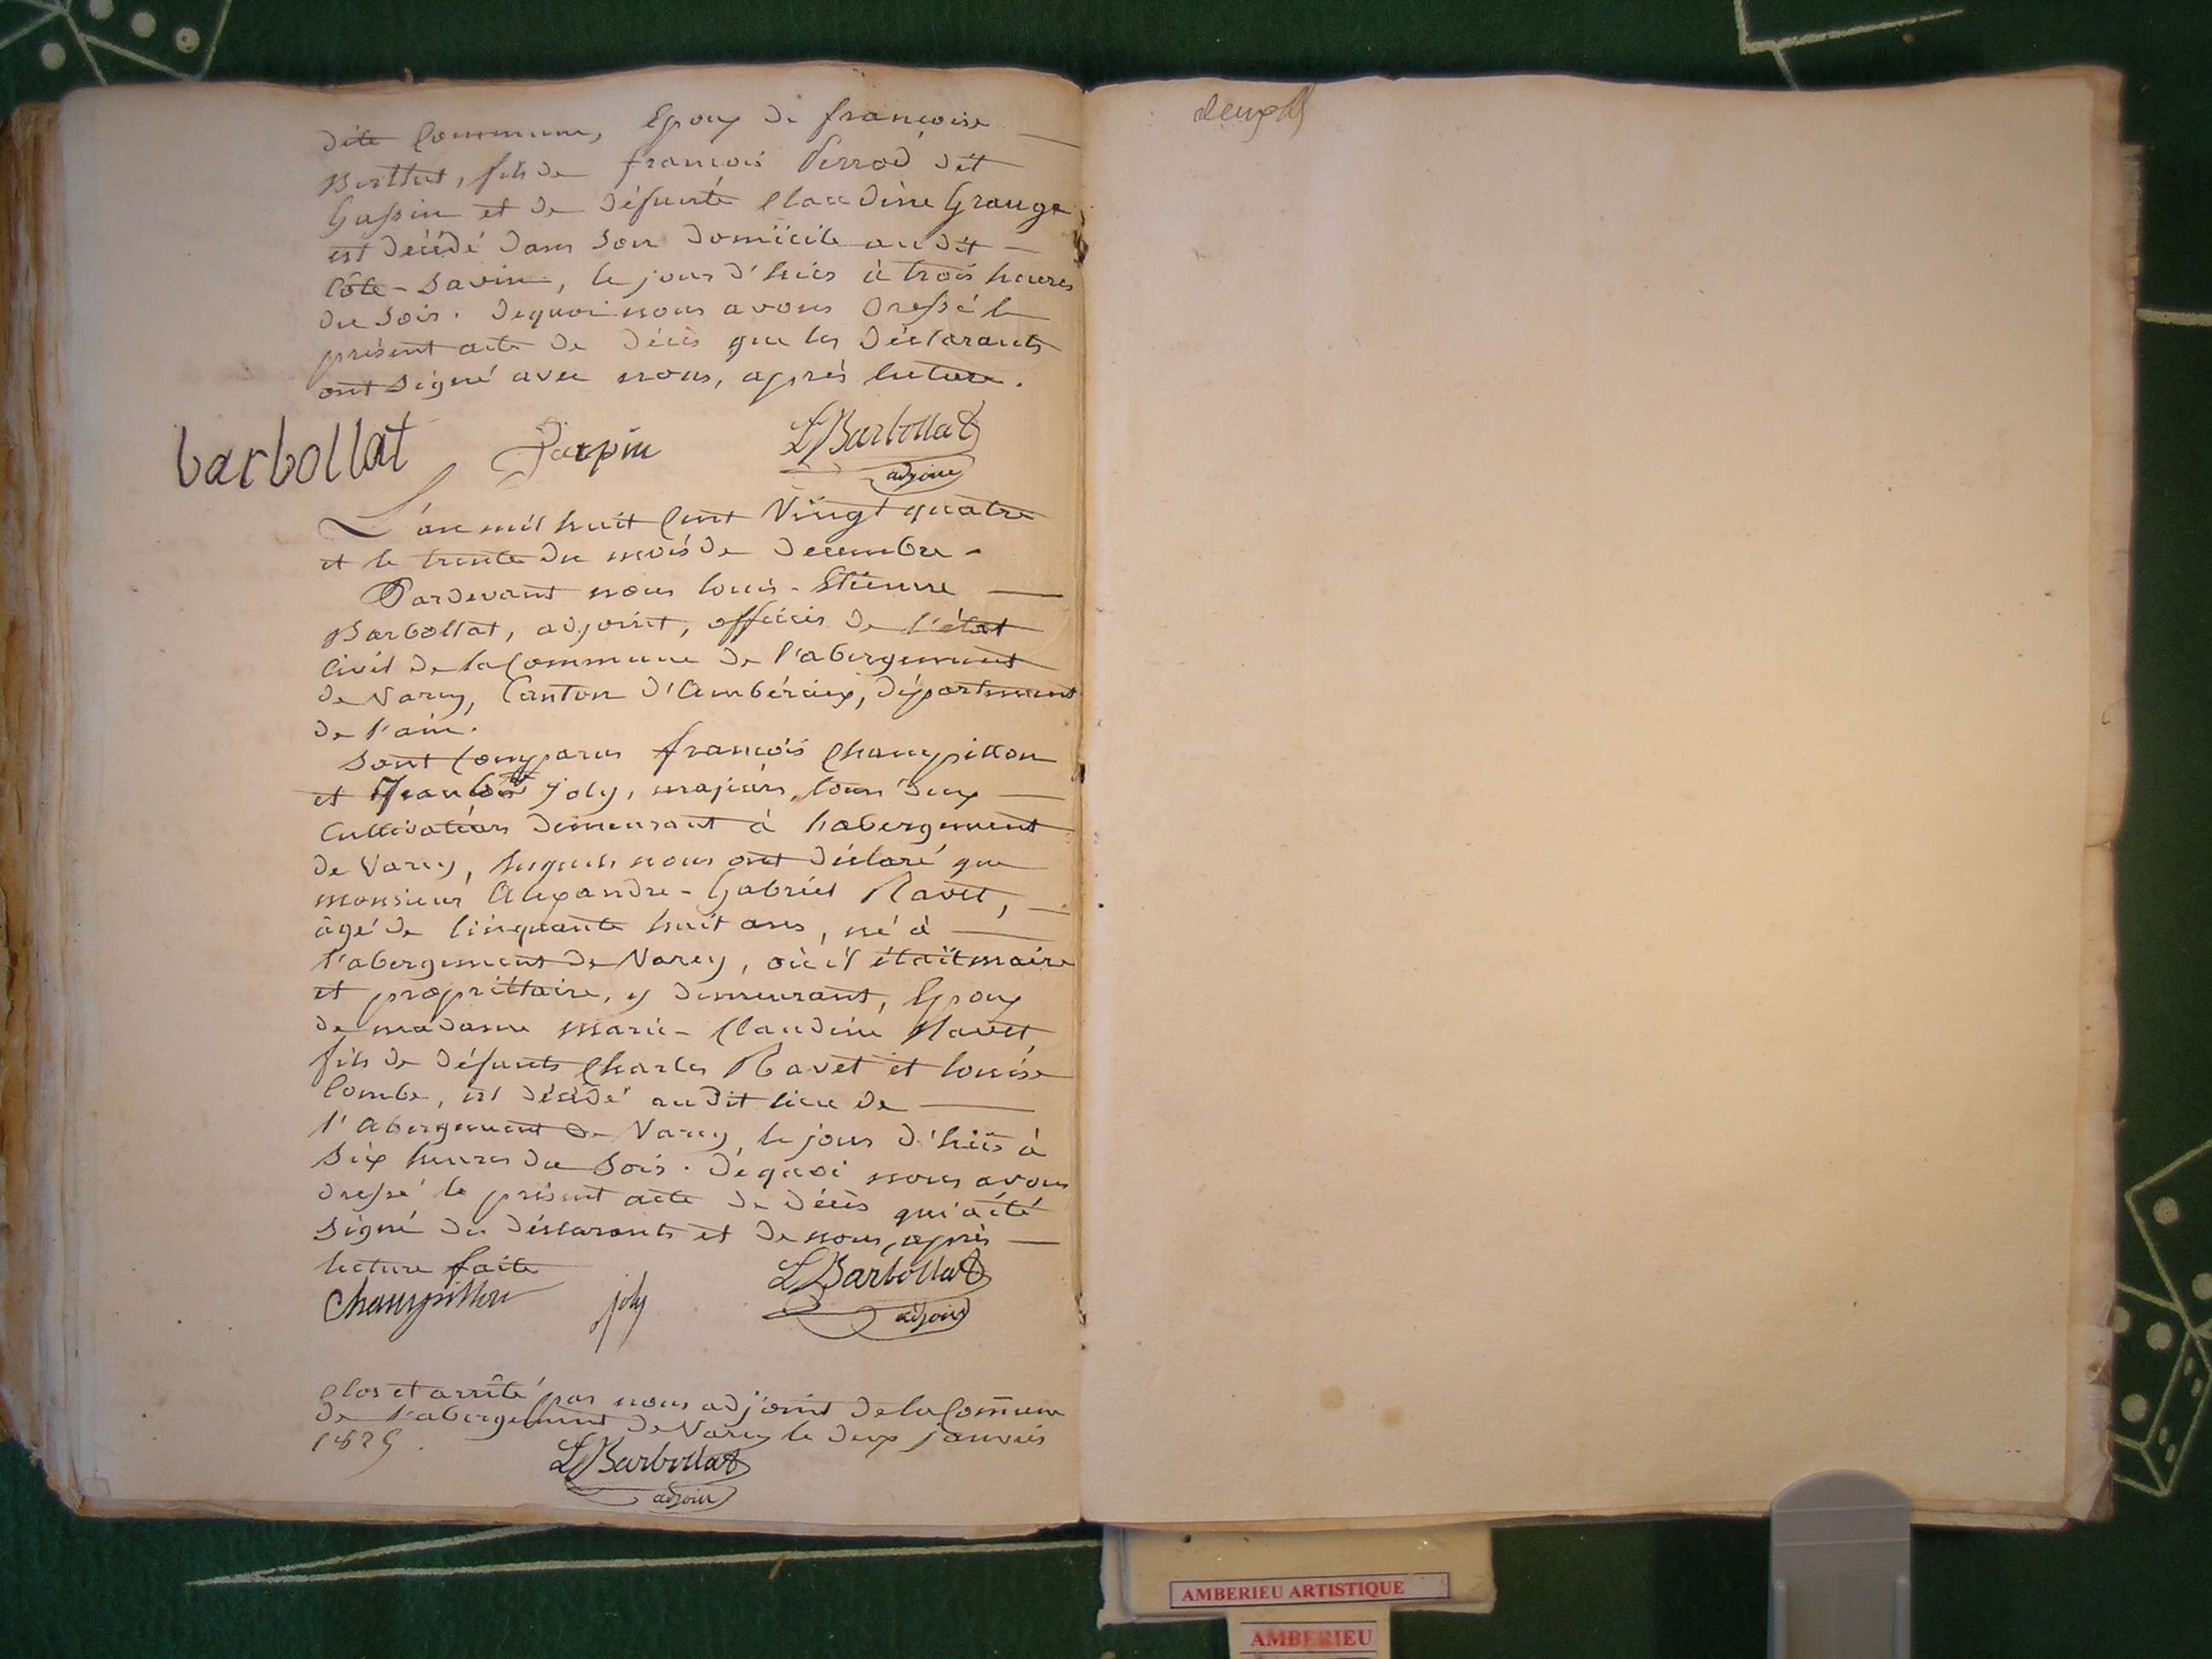 dite Commune, Epoux de françoise
Berthet, fils de françois Perrod dit
Gussin et de défunte Claudine Grange
est décédé dans son domicile au dit
Côte-Savin, le jour d'hier à trois heures
du soir. Dequoi nous avons dressé le
présent acte de décès que les déclarants
ont signé avec nous, après lecture.
barbollat Parpin L Barbollat
adjoint
L'an mil huit Cent Vingt quatre
et le trente du mois de decembre
Pardevant nous louis-Etienne
Barbollat, adjoint, officier de l'état
Civil de la Commune de l'abergement
de Varey, Canton d'Ambérieux, département
de l'ain.
Sont Comparus françois Champillon
et Jean Joly, majeurs, tous deux
Cultivateurs demeurant à labergement
de Varey, lesquels nous ont déclaré que
monsieur Alexandre-Gabriel Ravet,
âgé de Cinquante huit ans, né à
l'abergement de Varey, où il était maire
et propriétaire, y demeurant, Epoux
de madame marie-Claudine Ravet,
fils de défunts Charles Ravet et louise
Combe, est décédé au dit lieu de
l'Abergement de Varey, le jour d'hier à
Six heures du Soir. Dequoi nous avons
dressé le présent acte de décès qui a été
signé des déclarants et de nous, après
lecture faite
Champillon joly L Barbollat
adjoint
Clos et arrêté par nous adjoint de la Comune
de l'abergement de Varey le deux janvier
1825.
L Barbollat
adjoint
AMBERIEU ARTISTIQUE
AMBERIEU